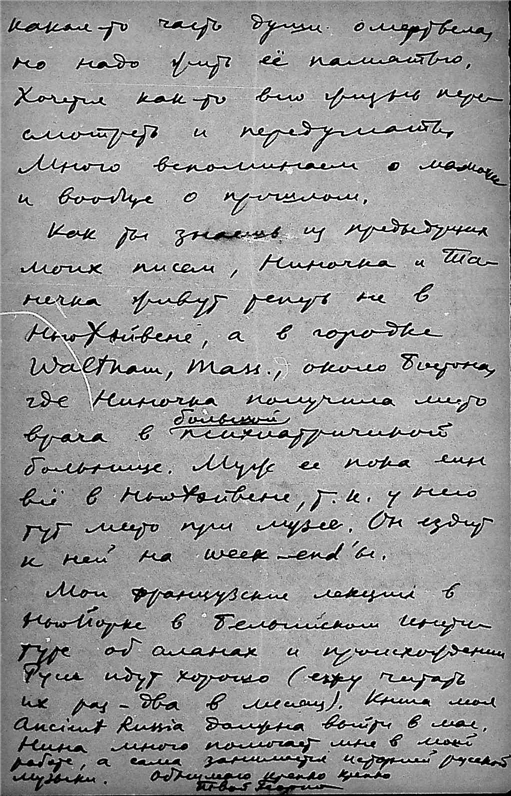 какая-то часть души омертвела,
но надо жить её памятью.
Хочется как-то всю жизнь пере-
смотреть и передумать.
Много вспоминаем о мамочке
и вообще о прошлом.
Как ты знаешь из предыдущих
моих писем, Ниночка и Та-
нечка живут теперь не в
НьюХэйвене, а в городке
Waltham, Mass., около Бостона,
где Ниночка получила место
врача в большой психиатрической
больнице. Муж ее пока еще
всё в НьюХэйвене, т.к. у него
тут место при музее. Он ездит
к ней на week-end'ы.
Мои французские лекции в
НьюЙорке в Бельгийском Инсти-
туте об аланах и происхождении
Руси идут хорошо (езжу читать
их раз-два в месяц). Книга моя
Ancient Russia должна выйти в мае.
Нина много помогает мне в моей
работе, а сама занимается историей русской
музыки. Обнимаю крепко целую
твой Георгий